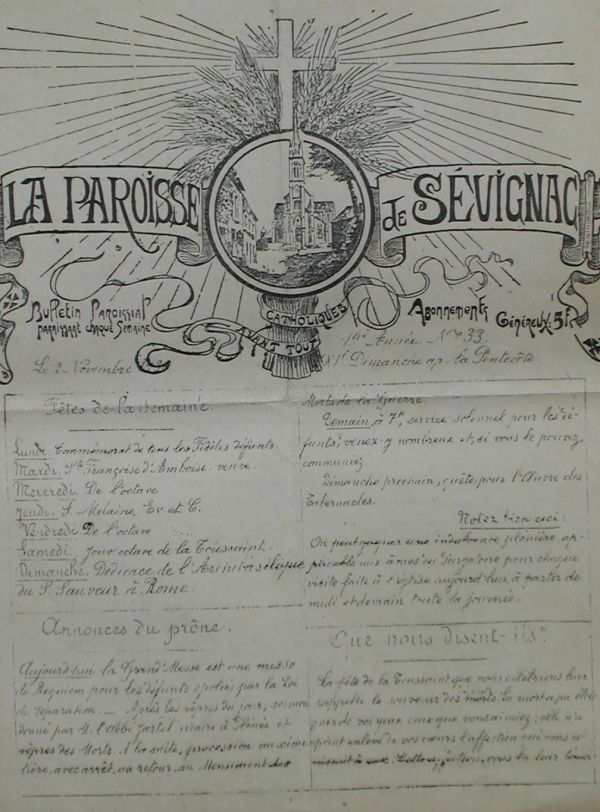 LA PAROISSE de SÉVIGNAC
Bulletin Paroissial
paraissant chaque Semaine
CATHOLIQUES
AVANT TOUT
Abonnements
Généreux 5F
Le 2 Novembre
1ère Année. No 33.
Dimanche ap. la Pentecôte.
Fêtes de la semaine.
Lundi. Commémorat. de tous les Fidèles défunts.
Mardi. Ste Françoise d'Amboise. veuve
Mercredi. De l'octave
Jeudi. S. Melaine, Ev. et C.
Vendredi. De l'octave
Samedi. Jour octave de la Toussaint.
Dimanche. Dédicace de l'Archibasilique
du S. Sauveur à Rome.
Annonces du prône.
Aujourd'hui la Grand'Messe est une messe
de Requiem pour les défunts spoliés par la Loi
de Séparation. — Après les vêpres du jour, sermon
donné par M. l'abbé Jartel vicaire à et
vêpres des Morts. A la suite, procession au cime-
tière, avec arrêt, au retour, au Monument des
Morts de la Guerre.
Demain, à 7h, service solennel pour les dé-
funts; venez-y nombreux et, si vous le pouvez,
communiez
Dimanche prochain, quête pour l'Œuvre des
Tabernacles.
Notez bien ceci:
On peut gagner une indulgence plénière ap-
plicable aux âmes du Purgatoire pour chaque
visite faite à l'église aujourd'hui, à partir de
midi et demain toute la journée.
Que nous disent-ils?
La fête de la Toussaint que nous célébrons hier
rappelle le souvenir des morts. La mort a pu éloi-
gner de vos yeux ceux que vous aimiez; elle n'a
point enlevé de vos cœurs l'affection qui vous